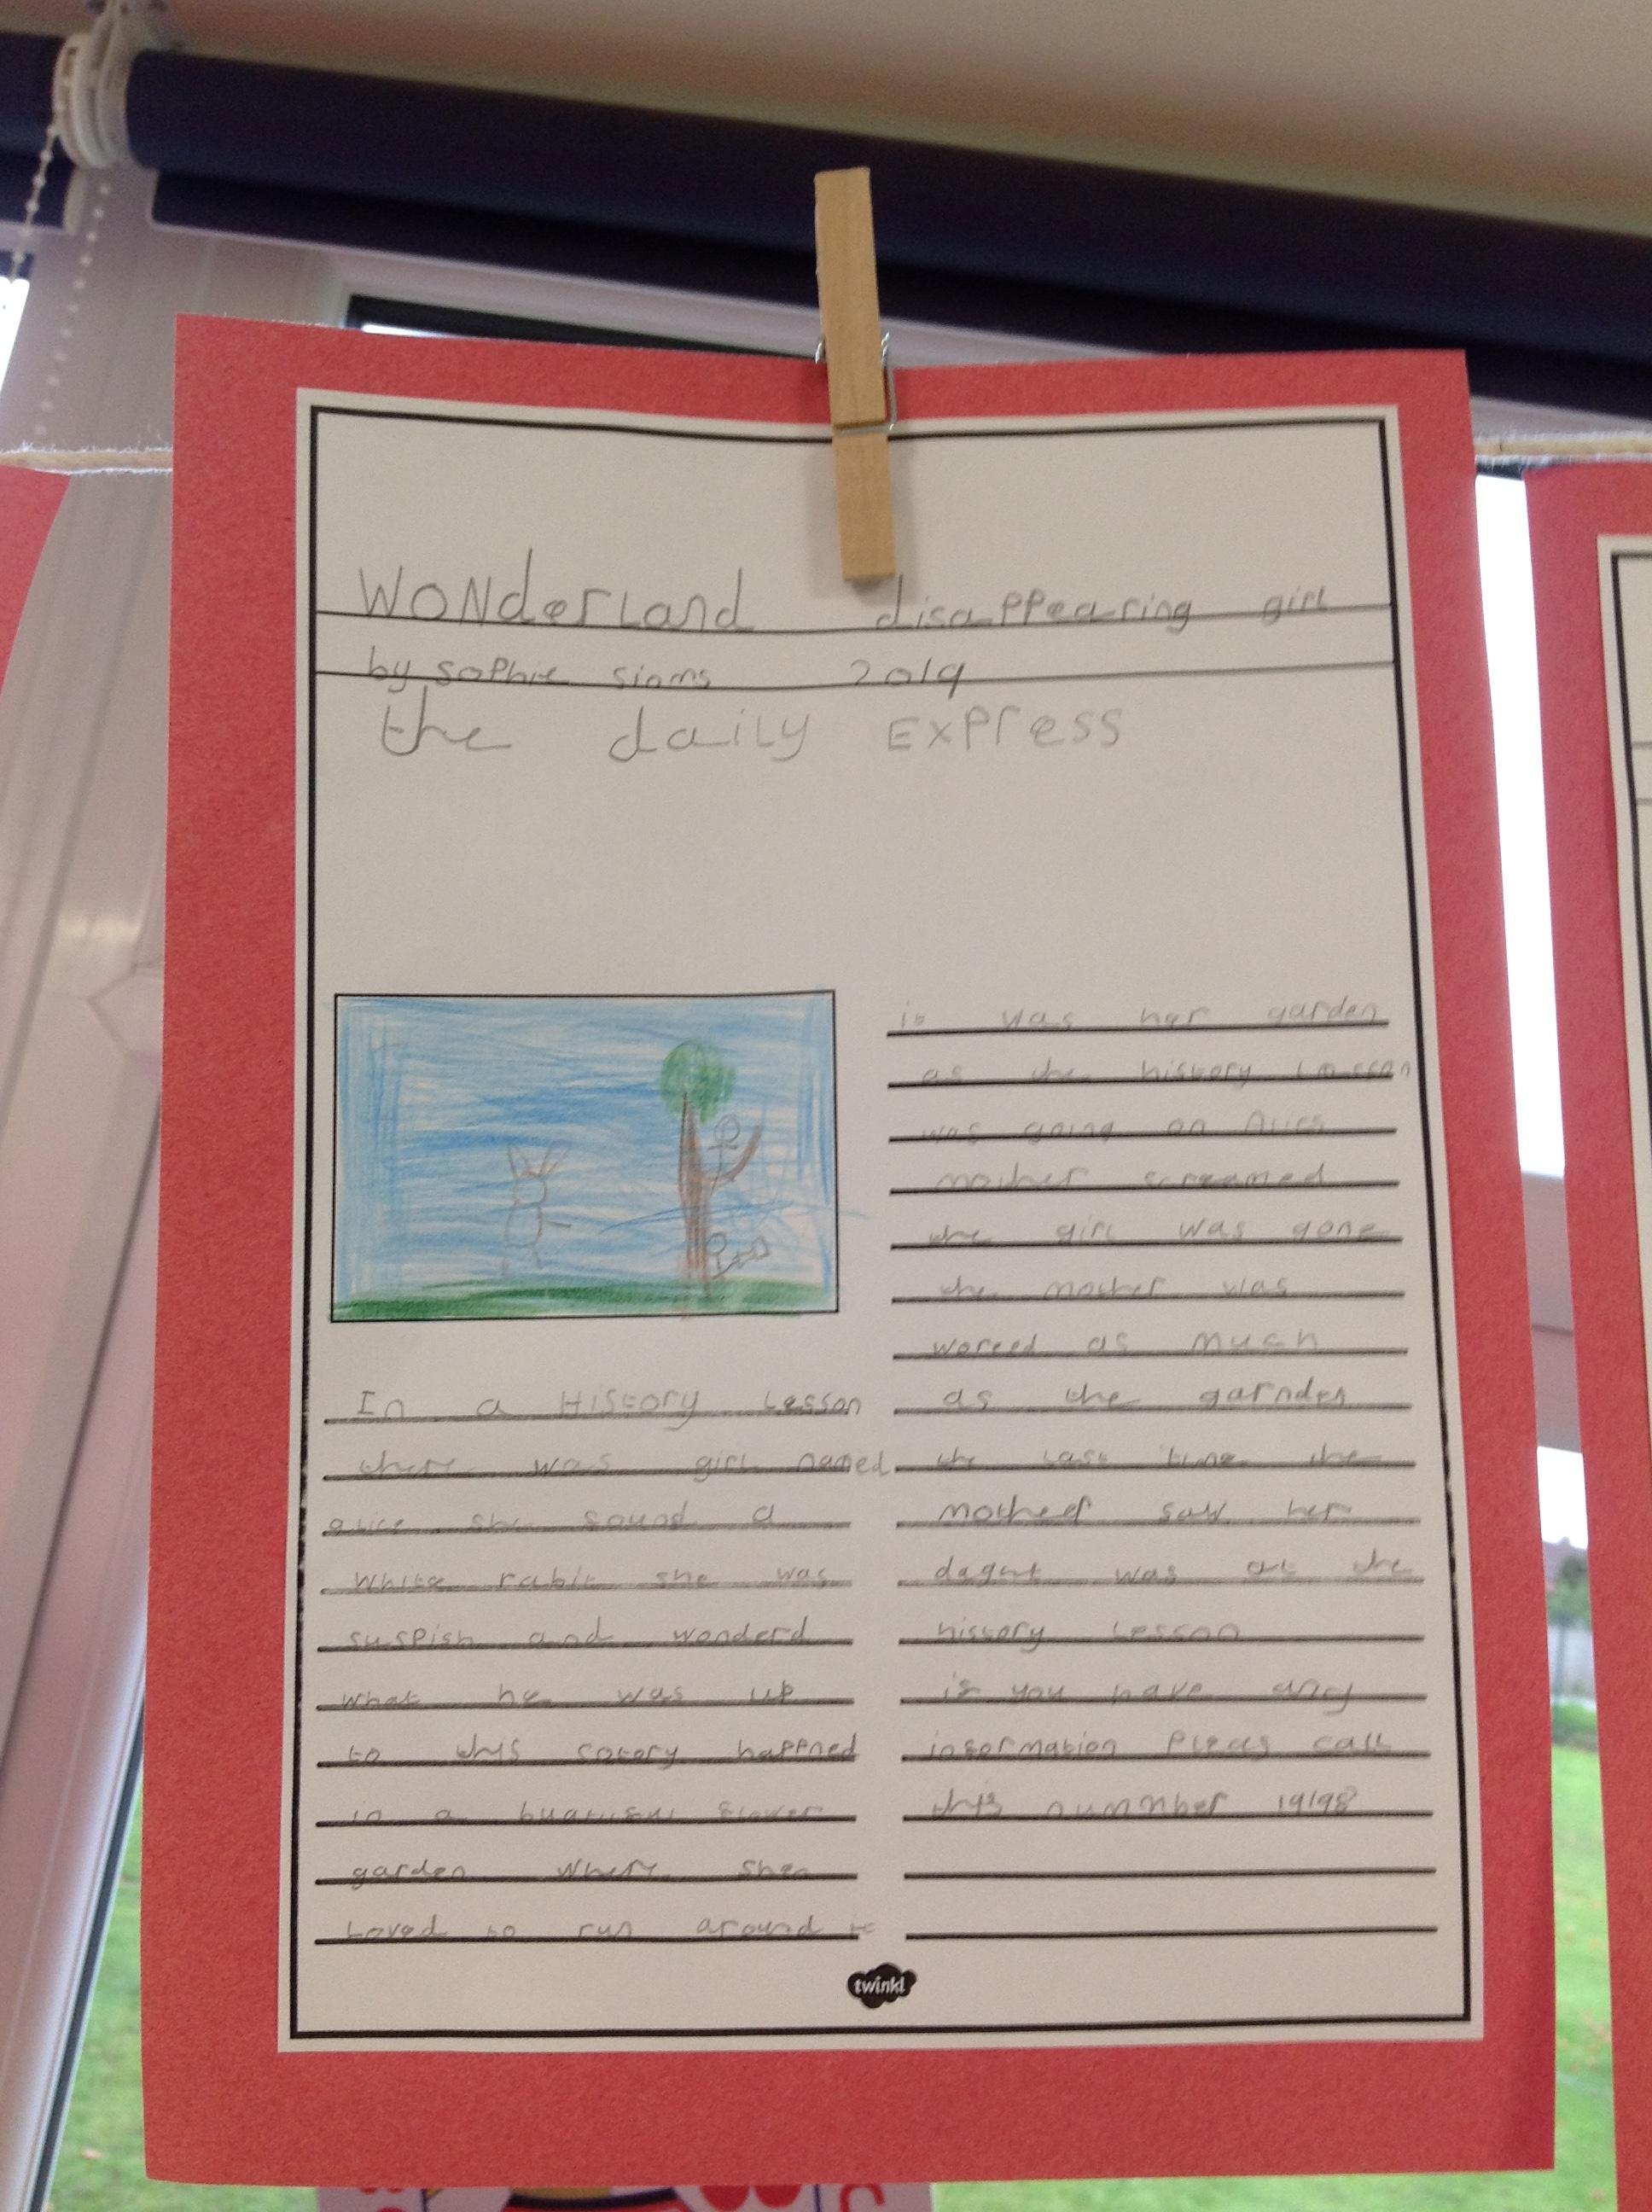 WONderLand disappearing girl
by sophie siams 2019
the daily Express
In a History Lesson
there was girl named
alice she sound a
white rabit she was
suspish and wonderd
what he was up
to this satory happned
in a buatiful flower
garden where shen
Loved to run around it
it was her garden
as the history Lesson
was going on Alics
mother screamed
the girl was gone
the mother was
woreed as much
as the garnden
the Last time the
mother saw her
daght was at the
history Lesson
if you have any
information Pleas call
this numnber 19198
twinkl